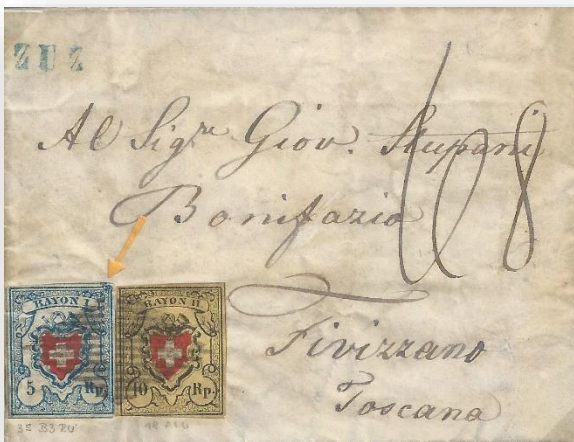 ZUZ
Al Sigre Giov. Stupani
Bonifazio
Fivizzano
Toscana
RAYON I.
5 Rp.
RAYON II.
10 Rp.